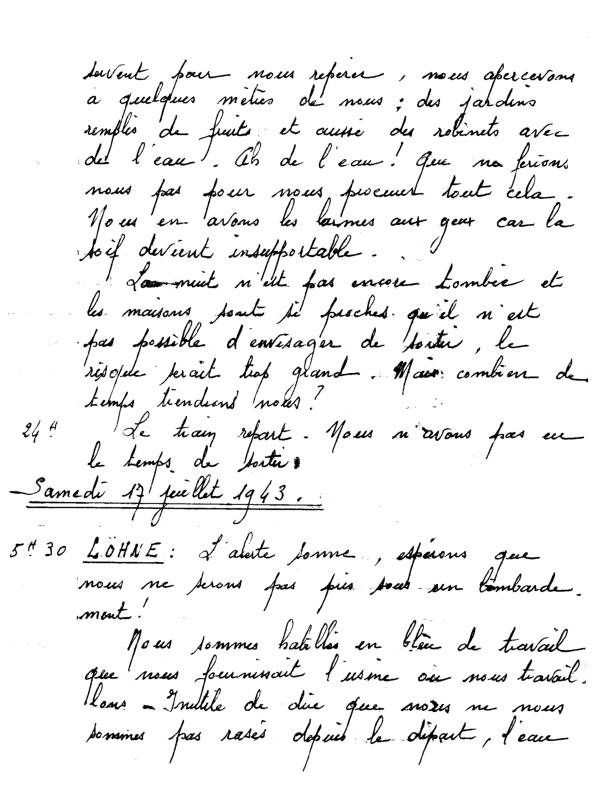 servent pour nous repérer, nous apercevons
a quelques mètres de nous : des jardins
remplis de fruits et aussi des robinets avec
de l'eau. Ah de l'eau! Que ne ferions
nous pas pour nous procurer tout cela.
Nous en avons les larmes aux yeux car la
soif devient insupportable.
La nuit n'est pas encore tombée et
les maisons sont si proches qu'il n'est
pas possible d'envisager de sortir, le
risque serait trop grand. Mais combien de
temps tiendrons nous?
24 H Le train repart. Nous n'avons pas eu
le temps de sortir.
Samedi 17 juillet 1943.
5H30 LÖHNE : L'alerte sonne, espérons que
nous ne serons pas pris sous un bombarde-
ment!
Nous sommes habillés en bleu de travail
que nous fournissait l'usine où nous travail-
lons - Inutile de dire que nous ne nous
sommes pas rasés depuis le départ, l'eau